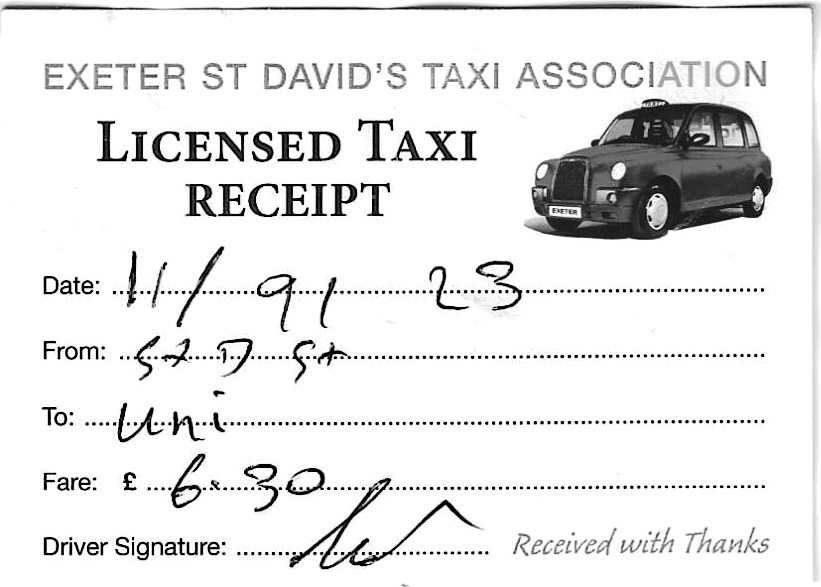 EXETER ST DAVID'S TAXI ASSOCIATION
LICENSED TAXI
RECEIPT
TAXI
EXETER
Date: 11/ 9/ 23
From: St D St
To: Uni
Fare: £ 6.30
Driver Signature:
Received with Thanks